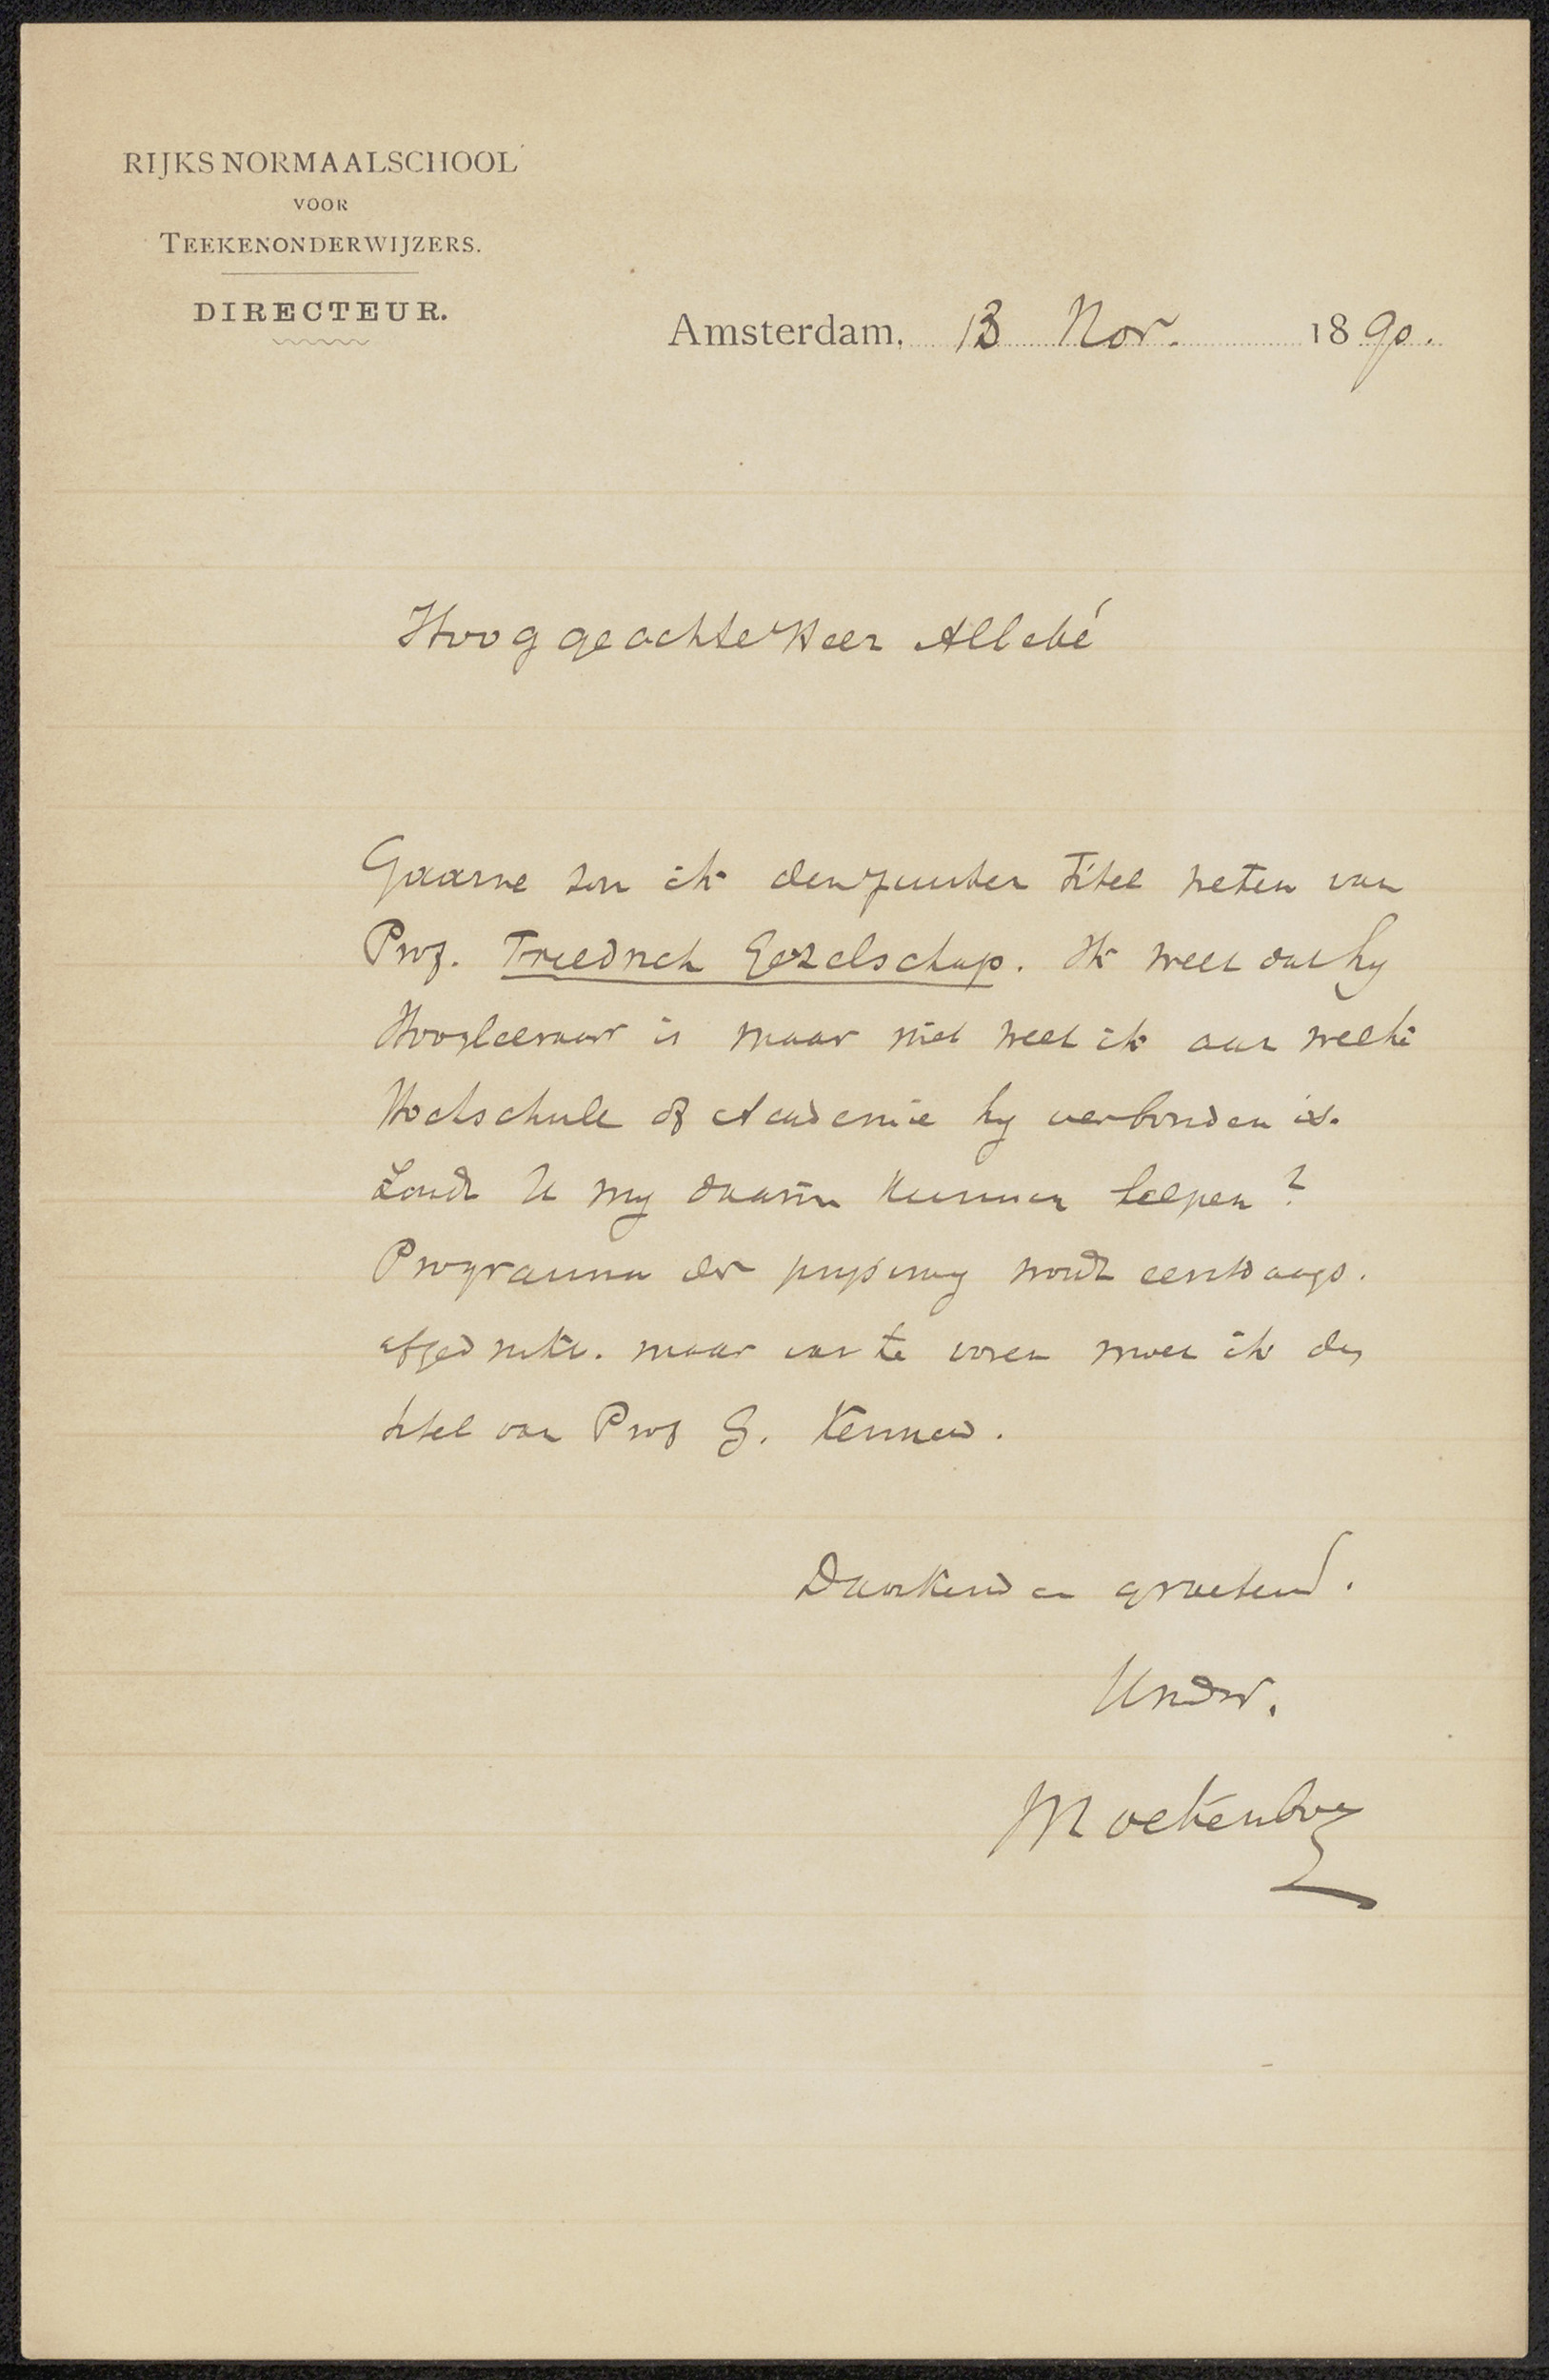 RIJKSNORMAALSCHOOL
VOOR
TEEKENONDERWIJZERS.
DIRECTEUR.
Amsterdam, 13 Nov. 1890.
Hooggeachte Heer Allebé
Gaarne zou ik den juisten titel weten van
Prof. Friedrich Gezelschap. Ik weet dat hy
Hoogleeraar is maar niet weet ik aan welke
Hochschule of Academie hy verbonden is.
Zoudt U my daarin kunnen helpen?
Programma der prysvraag wordt eerstdaags.
afgedrukt. maar van te voren moet ik den
titel van Prof G. kennen.
Dankend en groetend.
Uwdw.
Molkenboer